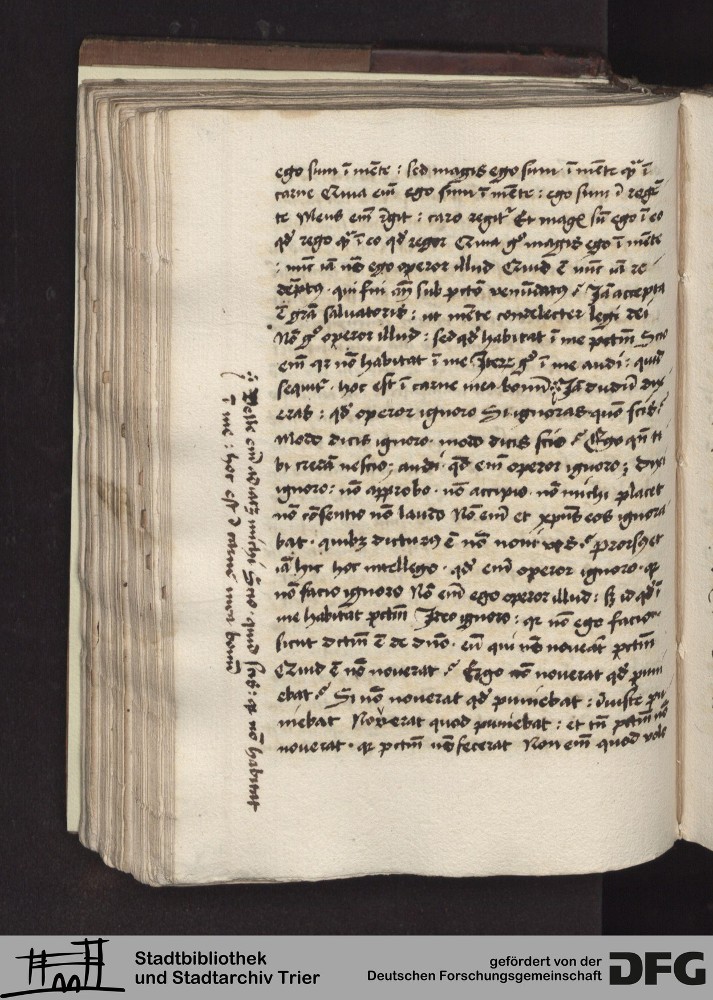 ego sum ī mēte : sed magis ego sum ī mēte q̄ ī
carne Quia em̄ ego sum ī mēte : ego sum ī regē
te Mens em̄ r̄git : caro regit᷑ Et mag᷒ sū ego ī eo
qd̄ rego q̄ ī eo qd̄ regor Quia gͦ magis ego ī mēte
: nūc iā nō ego operor illud Quid ē nūc iā re
dēptꝰ · qui fui an̄ sub pctō venūdatꝰ ? Iā accepta
ē grā salvatoris : ut mēte condelecter legi dei
Nō gͦ operor illud : sed qd̄ habitat ī me pctm̄ Scio
em̄ qr nō habitat ī me Iterꝝ gͦ ī me audi : quid
sequit᷑ · hoc est ī carne mea bonū : Iā dudū dix
eras : qd̄ operor ignoro Si ignoras quō scis ?
Modo dicis ignoro · modo dicis scio ? Ego qn̄ ti
bi credā nescio ; audi · qd̄ em̄ operor ignoro ; dixi
ignoro : nō approbo · nō accipio · nō michi placet
nō cōsentio nō laudo Nō em̄ et xp̄us eos ignora
bat · quibꝫ dicturꝰ ē nō novi vos ? Prorsꝰ et
iā hic hoc intellego · qd̄ em̄ operor ignoro · qr
nō facio ignoro Nō em̄ ego operor illud : sꝫ id qd̄ ī
me habitat pctm̄ Ideo ignoro : qr nō ego facio
sicut dctm̄ ē de dn̄o · eū qui nō noveat pctm̄
Quid ē nō noverat ? Ergo nō noverat qd̄ puni
ebat ? Si nō noverat qd̄ puniebat : iniuste pu
niebat Noverat quod puniebat : et tn̄ pctm̄ nō
noverat · qr pctm̄ nō fecerat Non em̄ quod volo
Velle em̄ adiacꝫ michi Scio · quid scis : qr nō habitat
ī me : hoc est ī carne mea bonū
Stadtbibliothek
und Stadtarchiv Trier
gefördert von der
Deutschen Forschungsgemeinschaft DFG